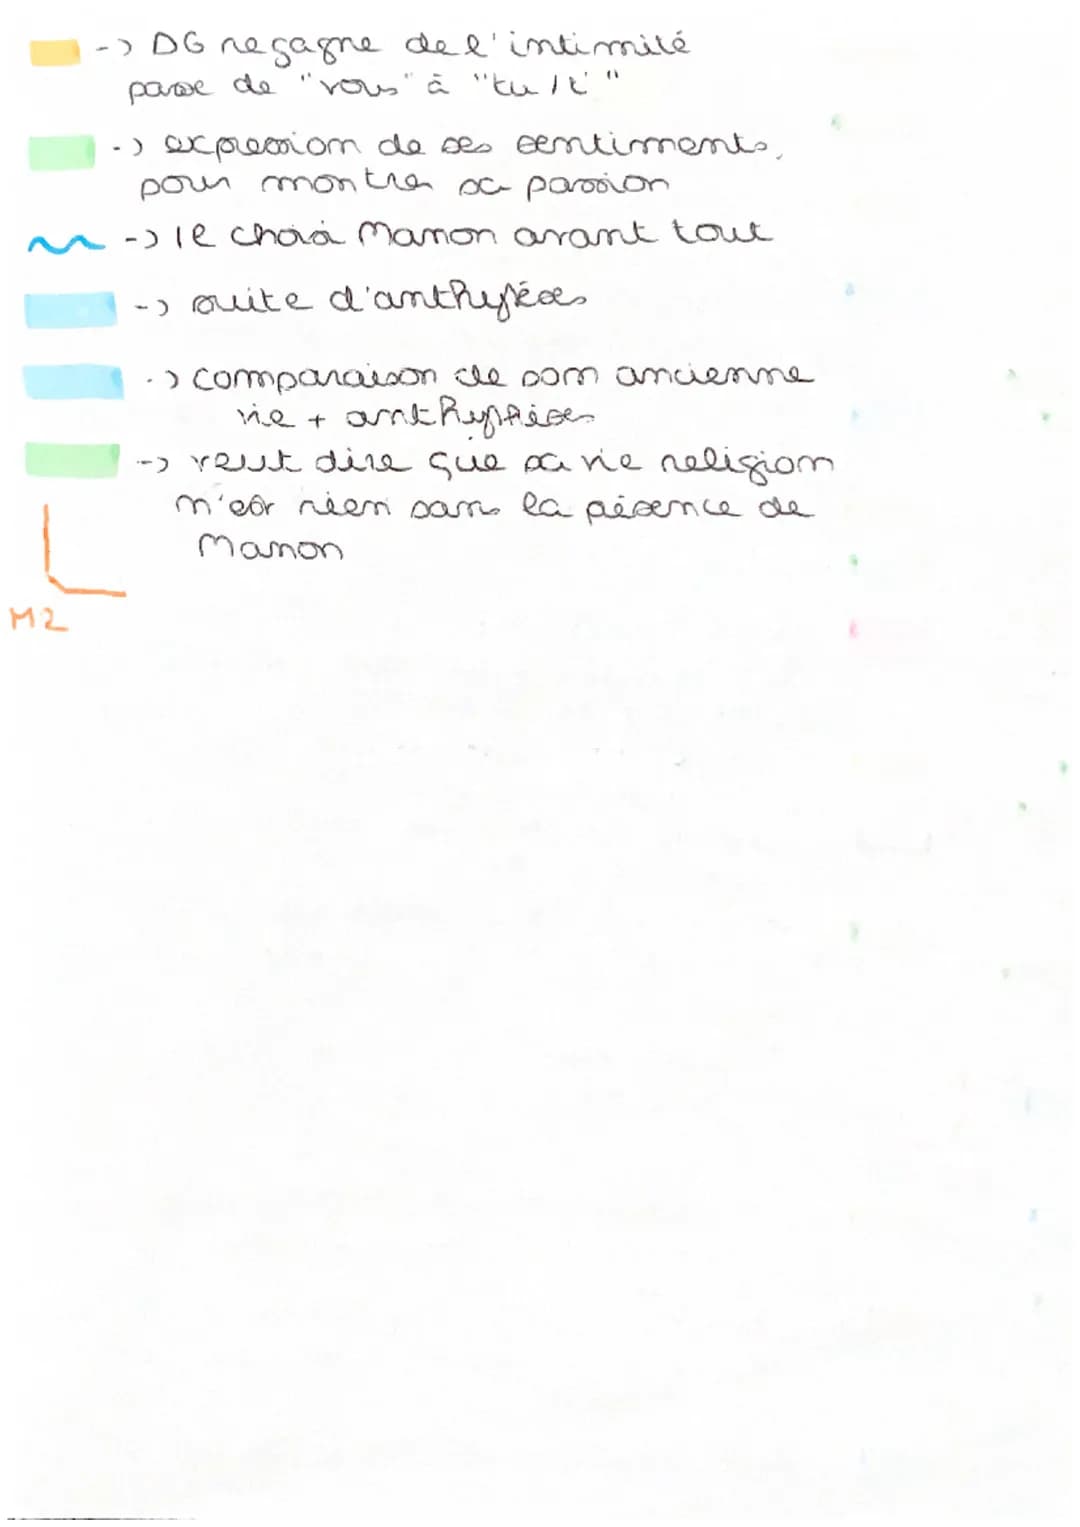 -> DG regagne de l'intimité
passe de "vous" à "tu / t'"
-> expression de ses sentiments,
pour montrer sa passion
-> le choix Manon avant tout
-> suite d'anthypéses
-> comparaison de son ancienne
vie + anthypthèses
-> veut dire que sa vie religion
n'est rien sans la pésence de
Manon
M2